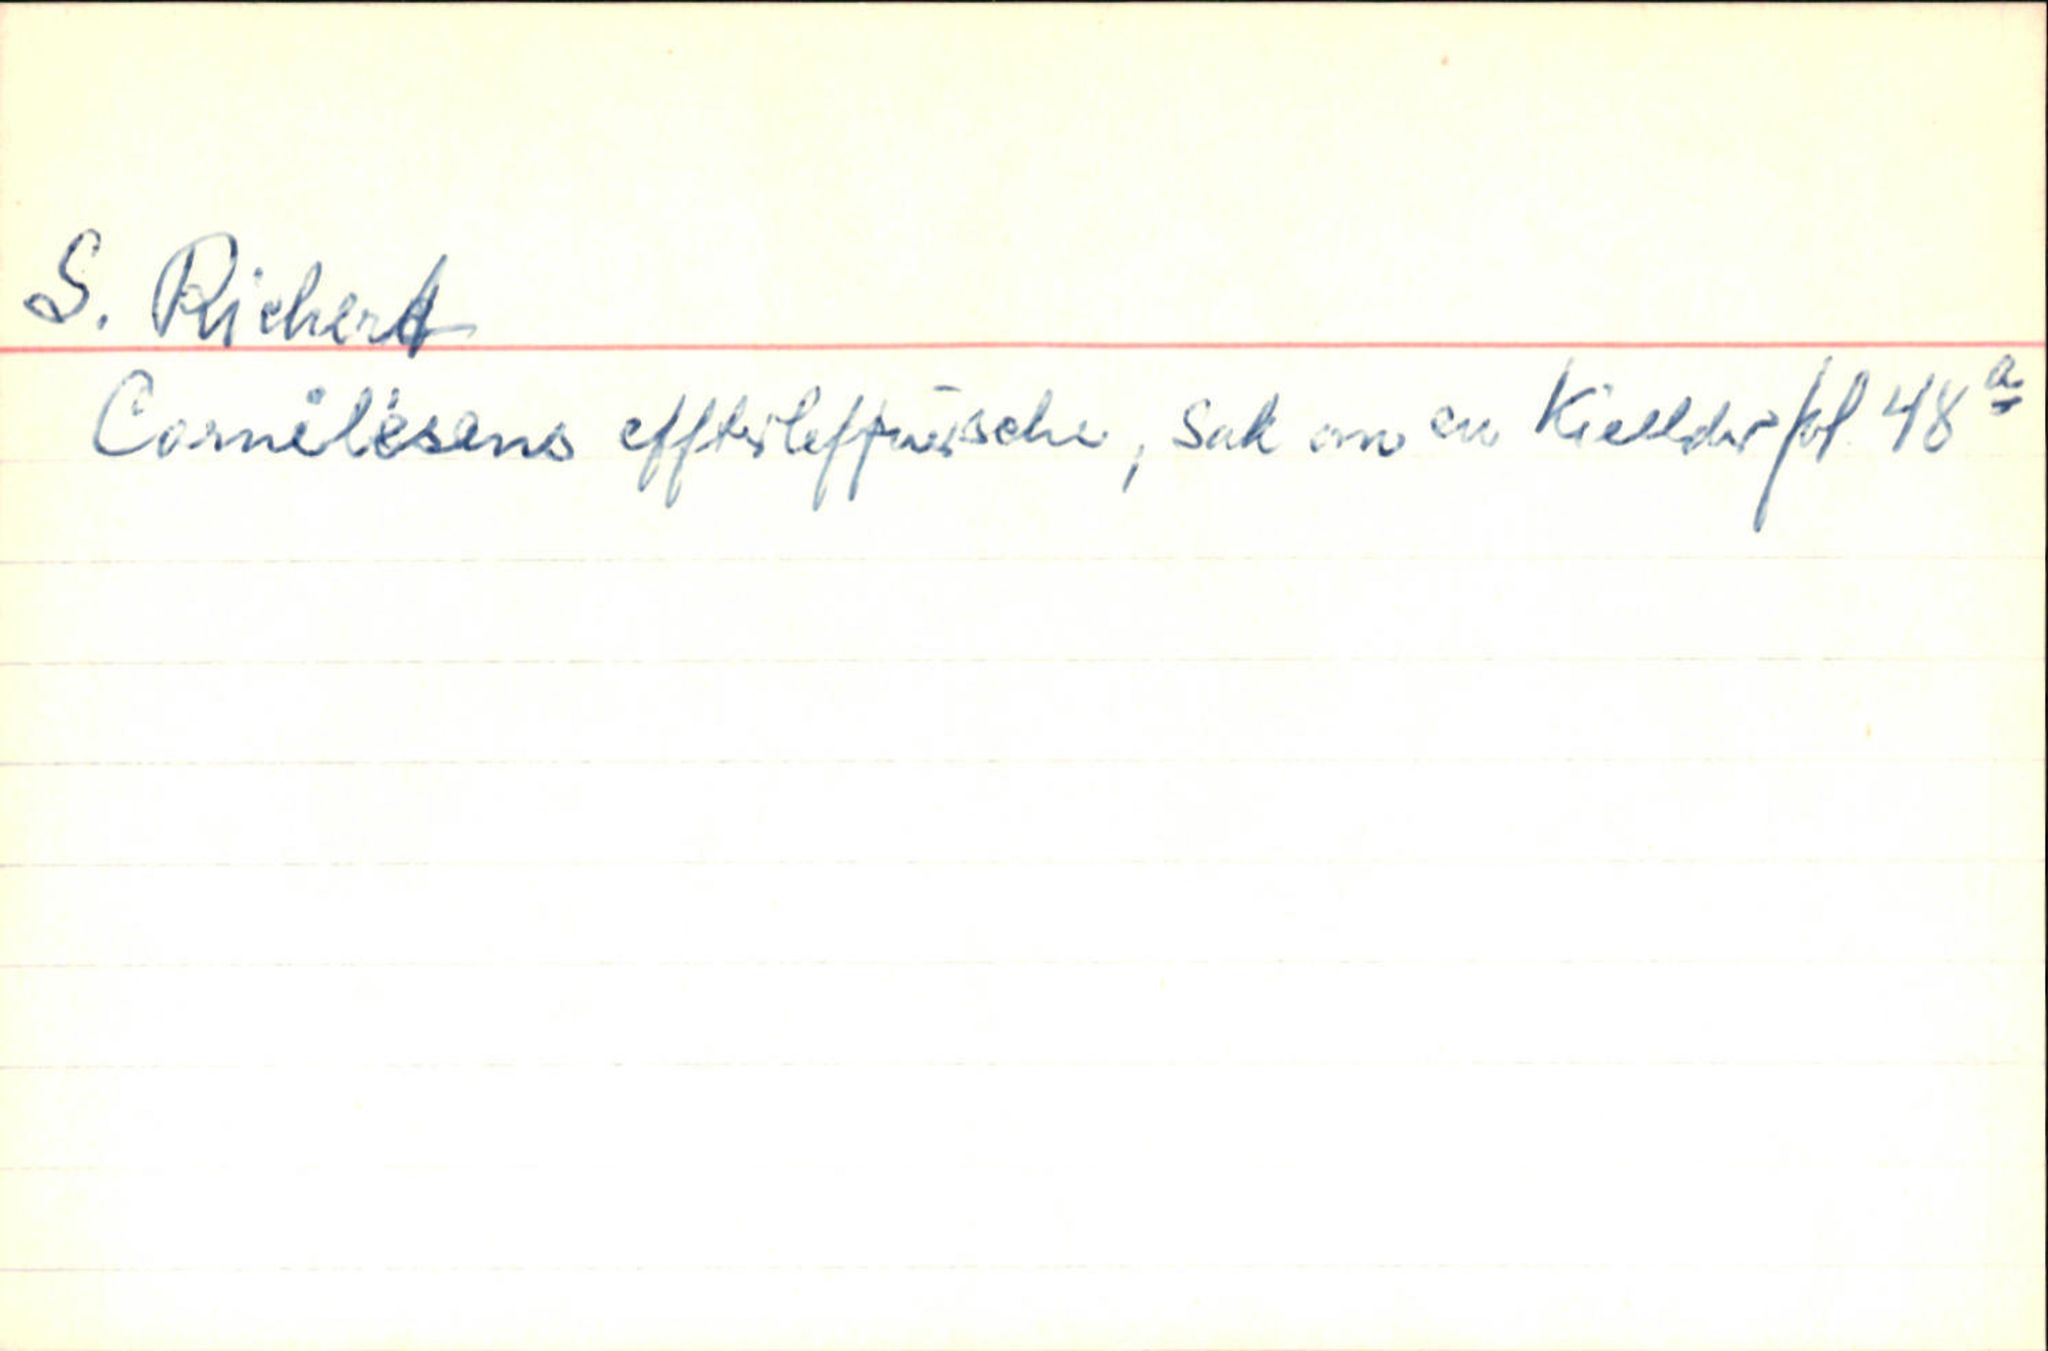 S. Richert
Cornelisens effterleffuersche, Sak om en Kielder fol. 48a